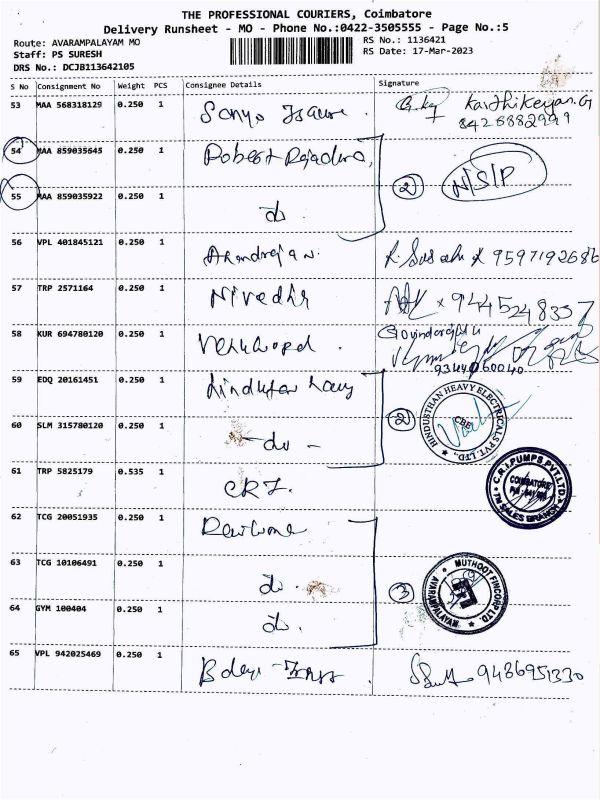 THE PROFESSIONAL COURIERS, Coimbatore
Delivery Runsheet - MO - Phone No.:0422-3505555 - Page No.:5
Route: AVARAMPALAYAM MO
RS No.: 1136421
Staff: PS SURESH
RS Date: 17-Mar-2023
DRS No.: DCJB113642105
S No Consignment No Weight PCS Consignee Details Signature
53 MAA 568318129 0.250 1 Karthikeyan.G
8426882999
54 MAA 859035645 0.250 1 Robert
2 N/S/P
55 MAA 859035922 0.250 1 do
56 VPL 401845121 0.250 1 9597192686
57 TRP 2571164 0.250 1 Nivedha x 9445248337
58 KUR 694780120 0.250 1 Venugopal. Govindarajulu
9344060040
59 EDQ 20161451 0.250 1
2 HINDUSTHAN HEAVY ELECTRICALS PVT. LTD., CBE
60 SLM 315780120 0.250 1 - do -
61 TRP 5825179 0.535 1 CRI.
C.R.I.PUMPS PVT.LTD. COIMBATORE TN SALES BRANCH
62 TCG 20051935 0.250 1
63 TCG 10106491 0.250 1 do.
3 MUTHOOT FINCORP LTD. AVARAMPALAYAM
64 GYM 100404 0.250 1 do.
65 VPL 942025469 0.250 1 9486951330